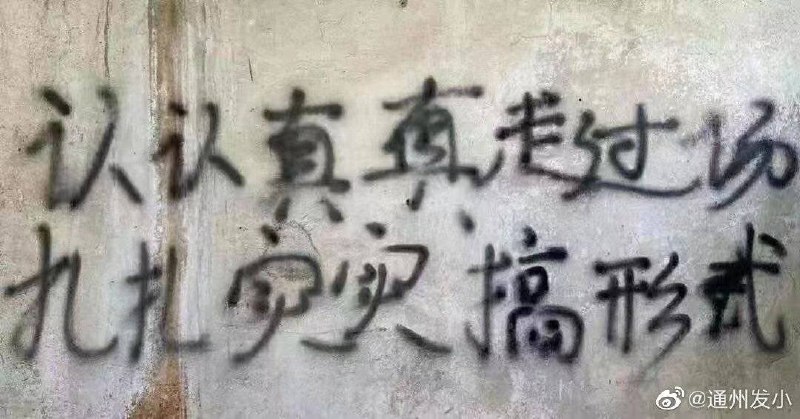 认认真真走过场
扎扎实实搞形式
@通州发小